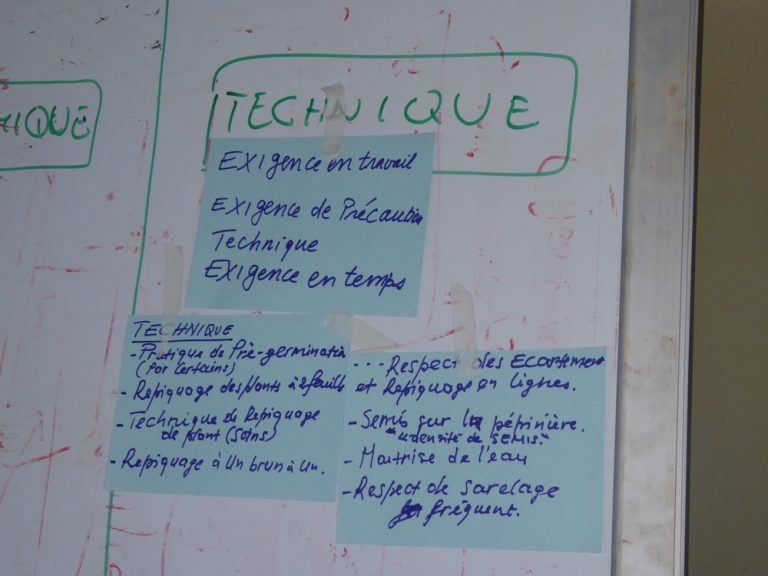 NIQUE
TECHNIQUE
EXIgence en travail
EXIgence de Précaution
Technique
EXIgence en temps
TECHNIQUE
- Pratique de Pré-germination
(Par Certains)
- Repiquage des plants à 2 feuills
- Technique de Repiquage
de plant (Soins)
- Repiquage à Un brun à Un.
--- Respect des Ecartement
et Repiquage en lignes.
- Semis sur la pépinière.
"densité de SEMIS."
- Maitrise de l'eau
- Respect de Sarclage
fréquent.